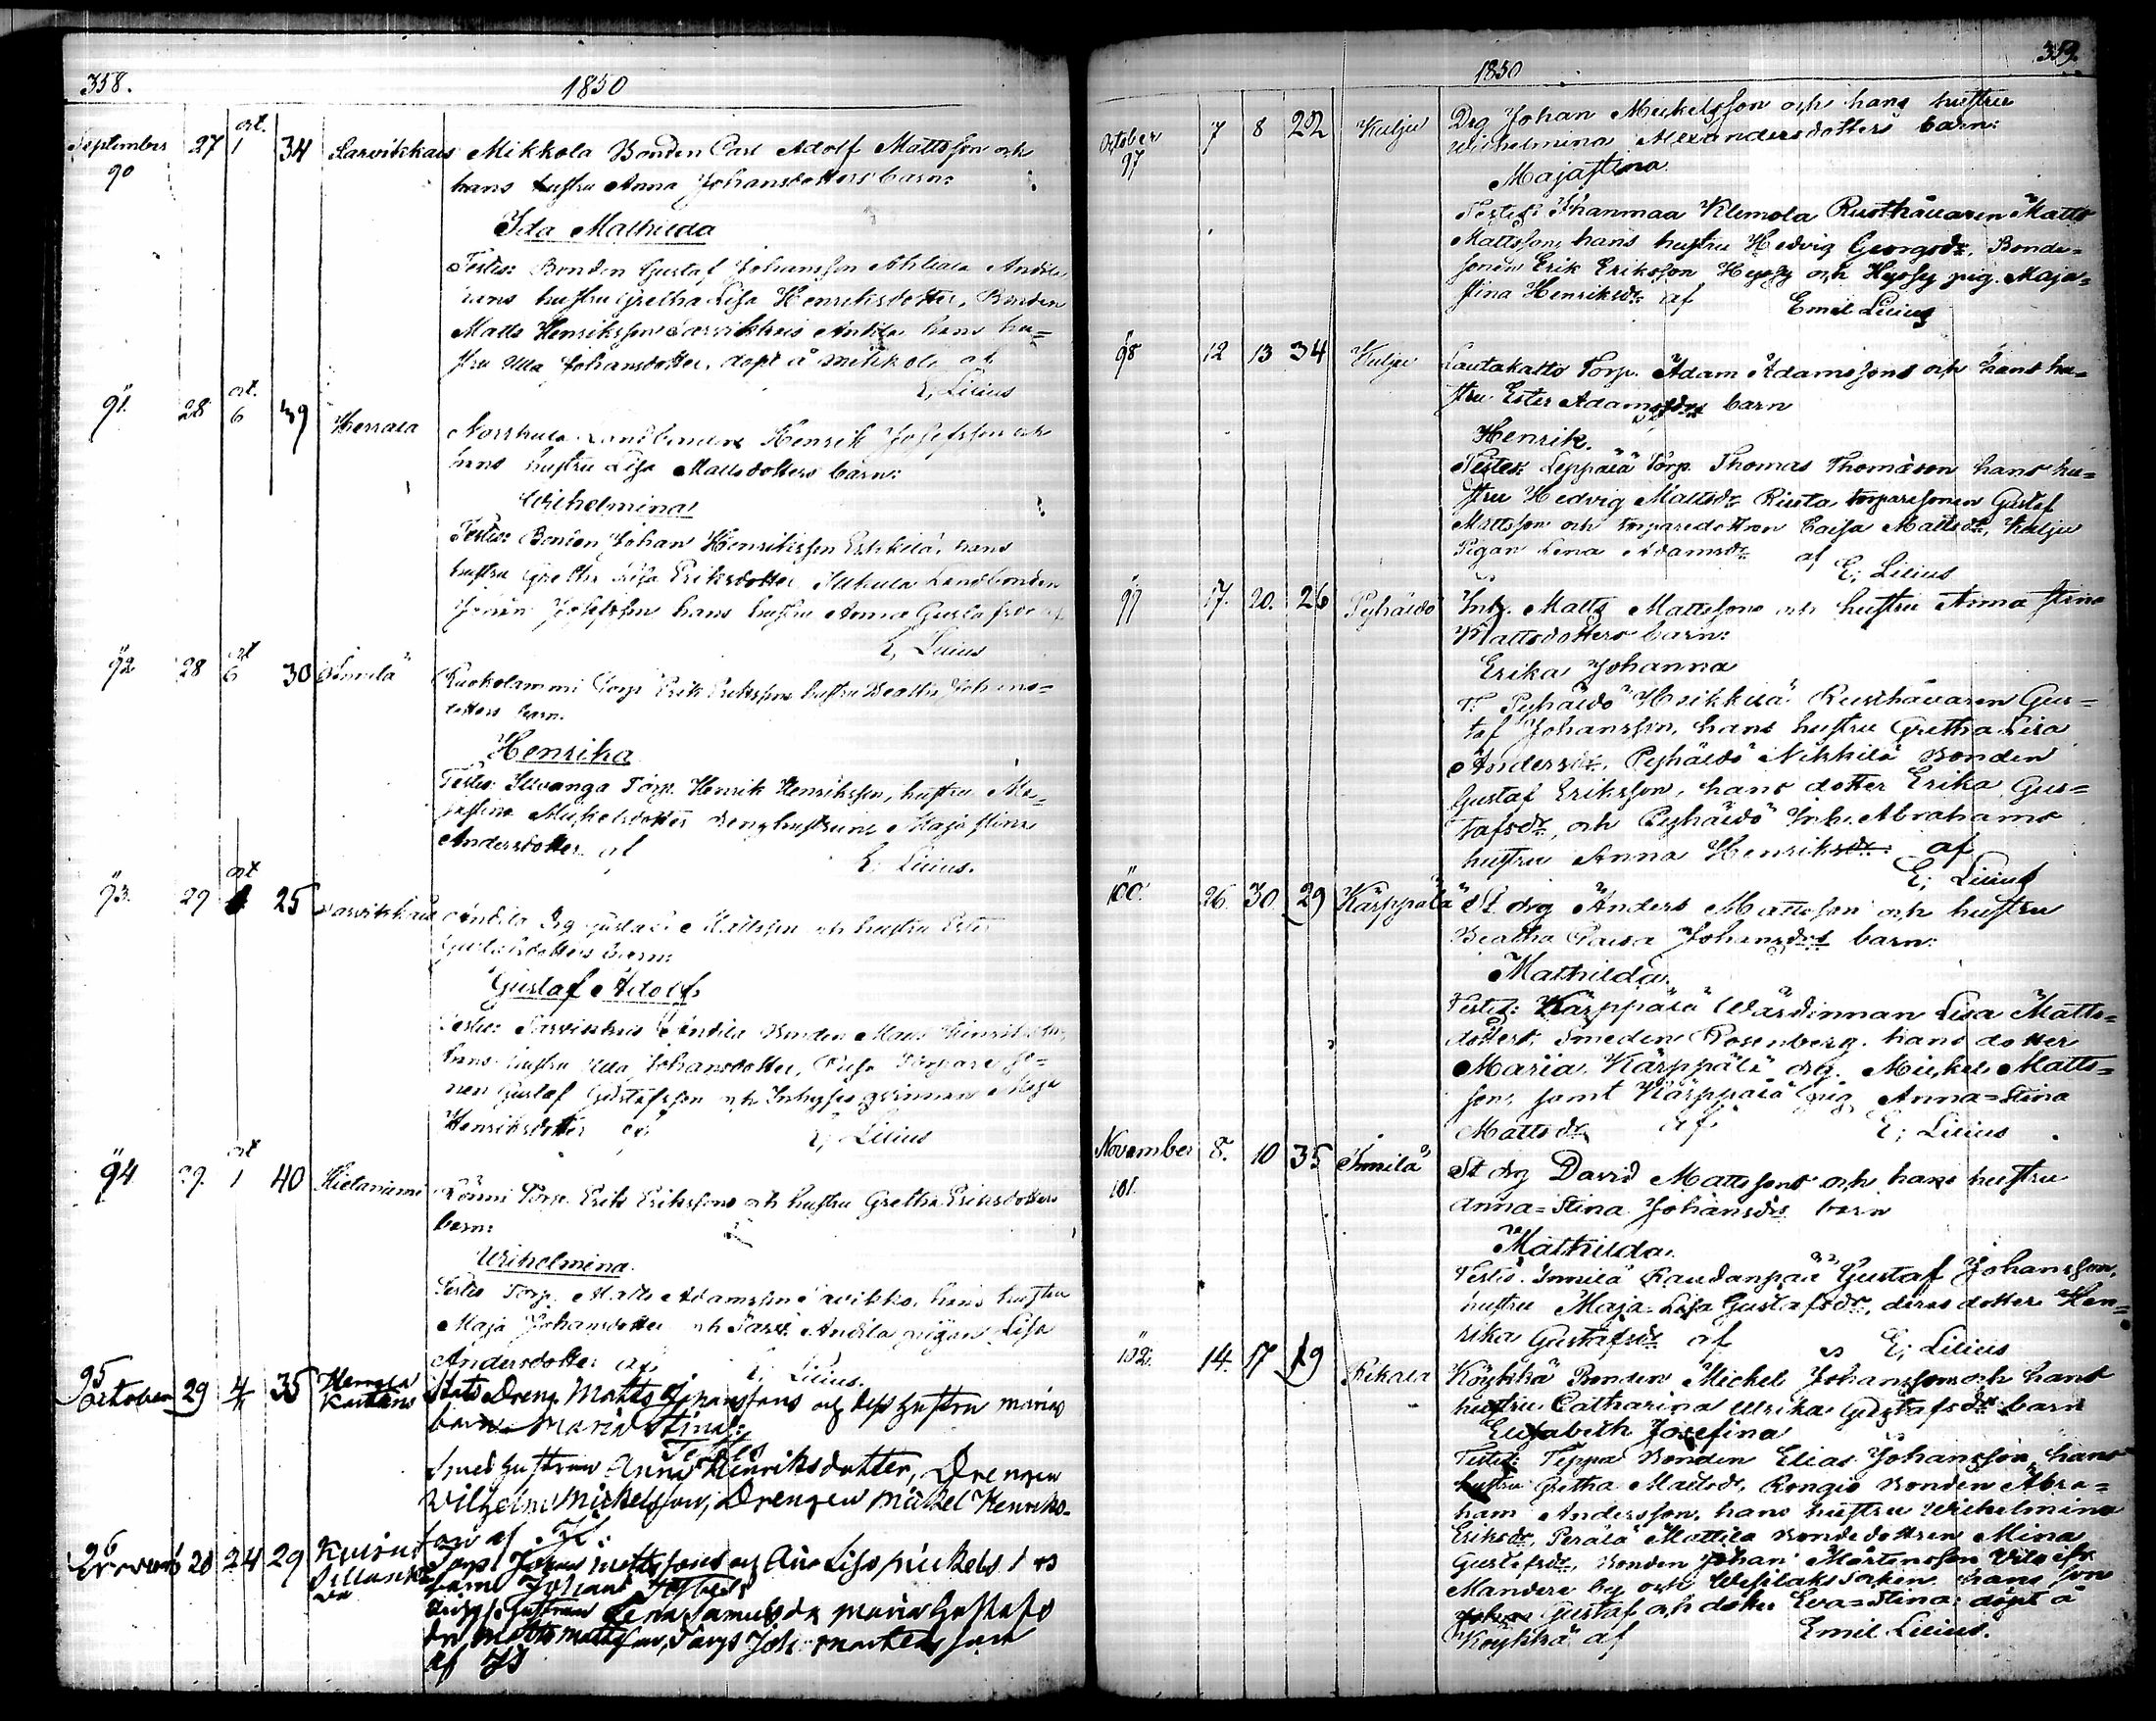 358.
1850
September 27 oct. 1 34 Sarvikkais Mikkola Bonden Carl Adolf Mattsson och
90
hans hustru Anna Johansdotters barn:
Ida Mathilda
Testes: Bonden Gustaf Johansson Ahtiala Andila
hans hustru Gretha Lisa Henriksdotter, Bonden
Matts Henriksson Sarvikkais Antila hans hu=
stru Ulla Johansdotter, döpt å Mikkola af
E, Lilius
91. 28 oct. 6 39 Herrala Norrkula Landbonden Henrik Josefsson och
hans hustru Lisa Mattsdotters barn:
Wilhelmina
Testes: Bonden Johan Henriksson Eskkilä, hans
hustru Gretha Lisa Eriksdotter, Landbonden
Johan Josefsson hans hustru Anna Gustafsdr af
E, Lilius
92 28 oct 6 30 Immilä Ruokolammi Torp. Erik Erikssons hustru Beatha Johans=
dotters barn.
Henrika
Testes: Torp. Henrik Henriksson, hustru Ma=
jastina Mickelsdotter drenghustrun Maja Stina
Andersdotter af E; Lilius.
93. 29 oct 25 Sarvikkais Andila Drg Gustaf Mattsson och hustru Ester
Gustafsdotters barn:
Gustaf Adolf
Testes: Sarvikkais Andila Bonden Matts Henriksson,
hans hustru Ulla Johansdotter, Torpare so=
nen Gustaf Gustafsson och Inhyses qvinnan Maja
Henriksdotter af E; Lilius
94 29. oct 1 40 Hietaniemi Torp. Erik Erikssons och hustru Gretha Eriksdotters
barn:
Wilhelmina
Testes Torp. Matts Adamsson Savikko, hans hustru
Maja Johansdotter och Sarv. Andila pigan Lisa
Andersdotter af E, Lilius.
95
October 29 4 35 Herrala Stats Dreng Matts och dess hustru Marias
barn Maria Stina:
Testes
Smed hustrun Anna Henriksdotter, Drengen
Wilhelm Mickelsson, Drengen Mickel Henriks-
son af
96
20 24 29 Torp Johan Mattssons och Lisa Mickels
barn Johan Testes
hustrun Lena Samuelsdr Maria Gustafs
dr Matts Mattsson, Torp Joh: Martensson
af
359.
1850
October 7 8 22 Kulju Drg. Johan Mickelsson och hans hustru
97
Wilhelmina Alexandersdotters barn:
Majastina
Testes: Ihanmaa Klemola Rusthållaren Matts
Mattsson, hans hustru Hedvig Georgsdr. Bonde=
sonen Erik Eriksson Hyssy och Hyssy pig. Maja=
stina Henriksdr. af Emil Lilius
98 12 13 34 Kulju Lautakatto Torp. Adam Adamssons och hans hu=
stru Ester Adamsdrs barn
Henrik.
Testes: Leppälä Torp. Thomas Thomasson hans hu=
stru Hedvig Mattsdr. Riuta torparesonen Gustaf
Mattsson och torparedottren Caisa Mattsdr, Kulju
Pigan Lena Adamsdr. af
E; Lilius
99 17. 20. 26 Pyhäldö Inh. Matts Mattssons och hustru Anna Stina
Mattsdotters barn:
Erika Johanna
T. Pyhäldö Heikkilä Rusthållaren Gus=
taf Johansson, hans hustru Gretha Lisa
Andersdr. Pyhäldö Nikkilä Bonden
Gustaf Eriksson, hans dotter Erika Gus=
tafsdr, och Pyhäldö Inh. Abrahams
hustru Anna Henriksdr. af
E; Lilius
100. 26. 30 29 Kärppälä St drg Anders Mattsson och hustru
Beatha Caisa Johansdrs barn:
Mathilda.
Testes: Kärppälä Wärdinnan Lisa Matts=
dotter, Smeden Rosenberg. hans dotter
Maria. Kärppälä drg. Mickel Matts=
son, samt Kärppälä pig Anna=Stina
Mattsdr. af E; Lilius
November 8. 10 35 Immilä St drg David Mattssons och hans hustru
101.
Anna=Stina Johansdrs barn
Mathilda.
Testes. Immilä Raudanpää Gustaf Johansson,
hustru Maja-Lisa Gustafsdr, deras dotter Hen=
rika Gustafsdr. af E; Lilius
102. 14. 17 19 Rekala Köykkä Bonden Mickel Johanssons och hans
hustru Catharina Ulrika Gustafsdr barn
Elisabeth Josefina
Testes: Teppa Bonden Elias Johansson, hans
hustru Gretha Mattsdr, Rongio Bonden Abra=
ham Andersson, hans hustru Wilhelmina
Eriksdr, Perälä Mattila Bondedottren Mina
Gustafsdr, Bonden Johan Mårtensson
Mandere by och Wesilaks Socken hans son
Gustaf och dotter Eva=Stina; döpt å
Köykkä af Emil Lilius.